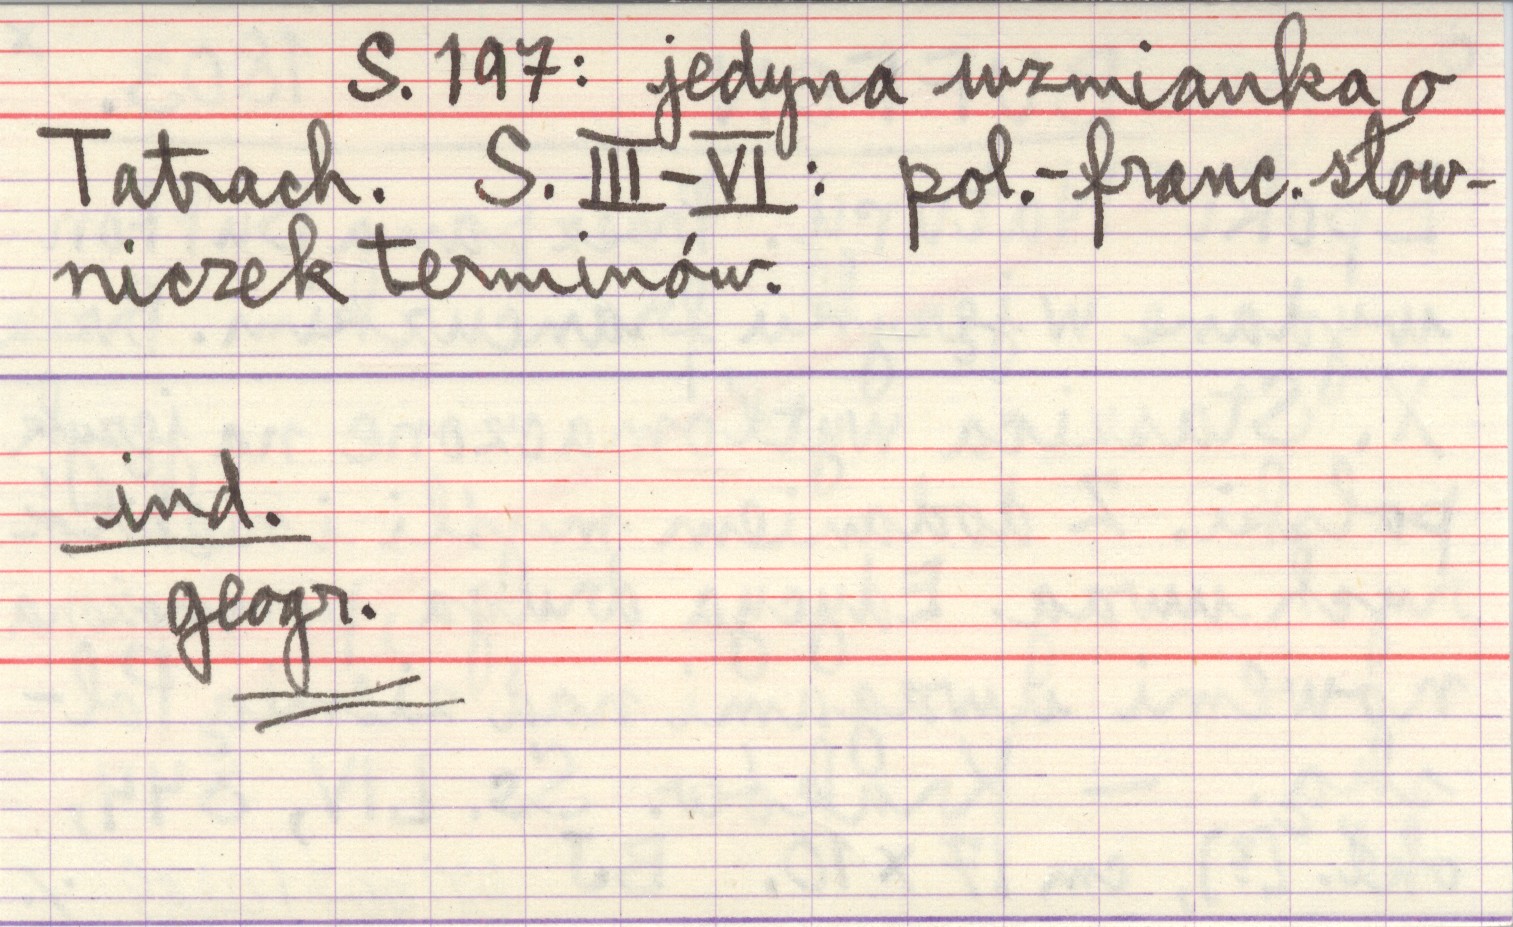 S. 197: jedyna wzmianka o
Tatrach. S. III-VI: pol.-franc. słow-
niczek terminów.
ind.
geogr.